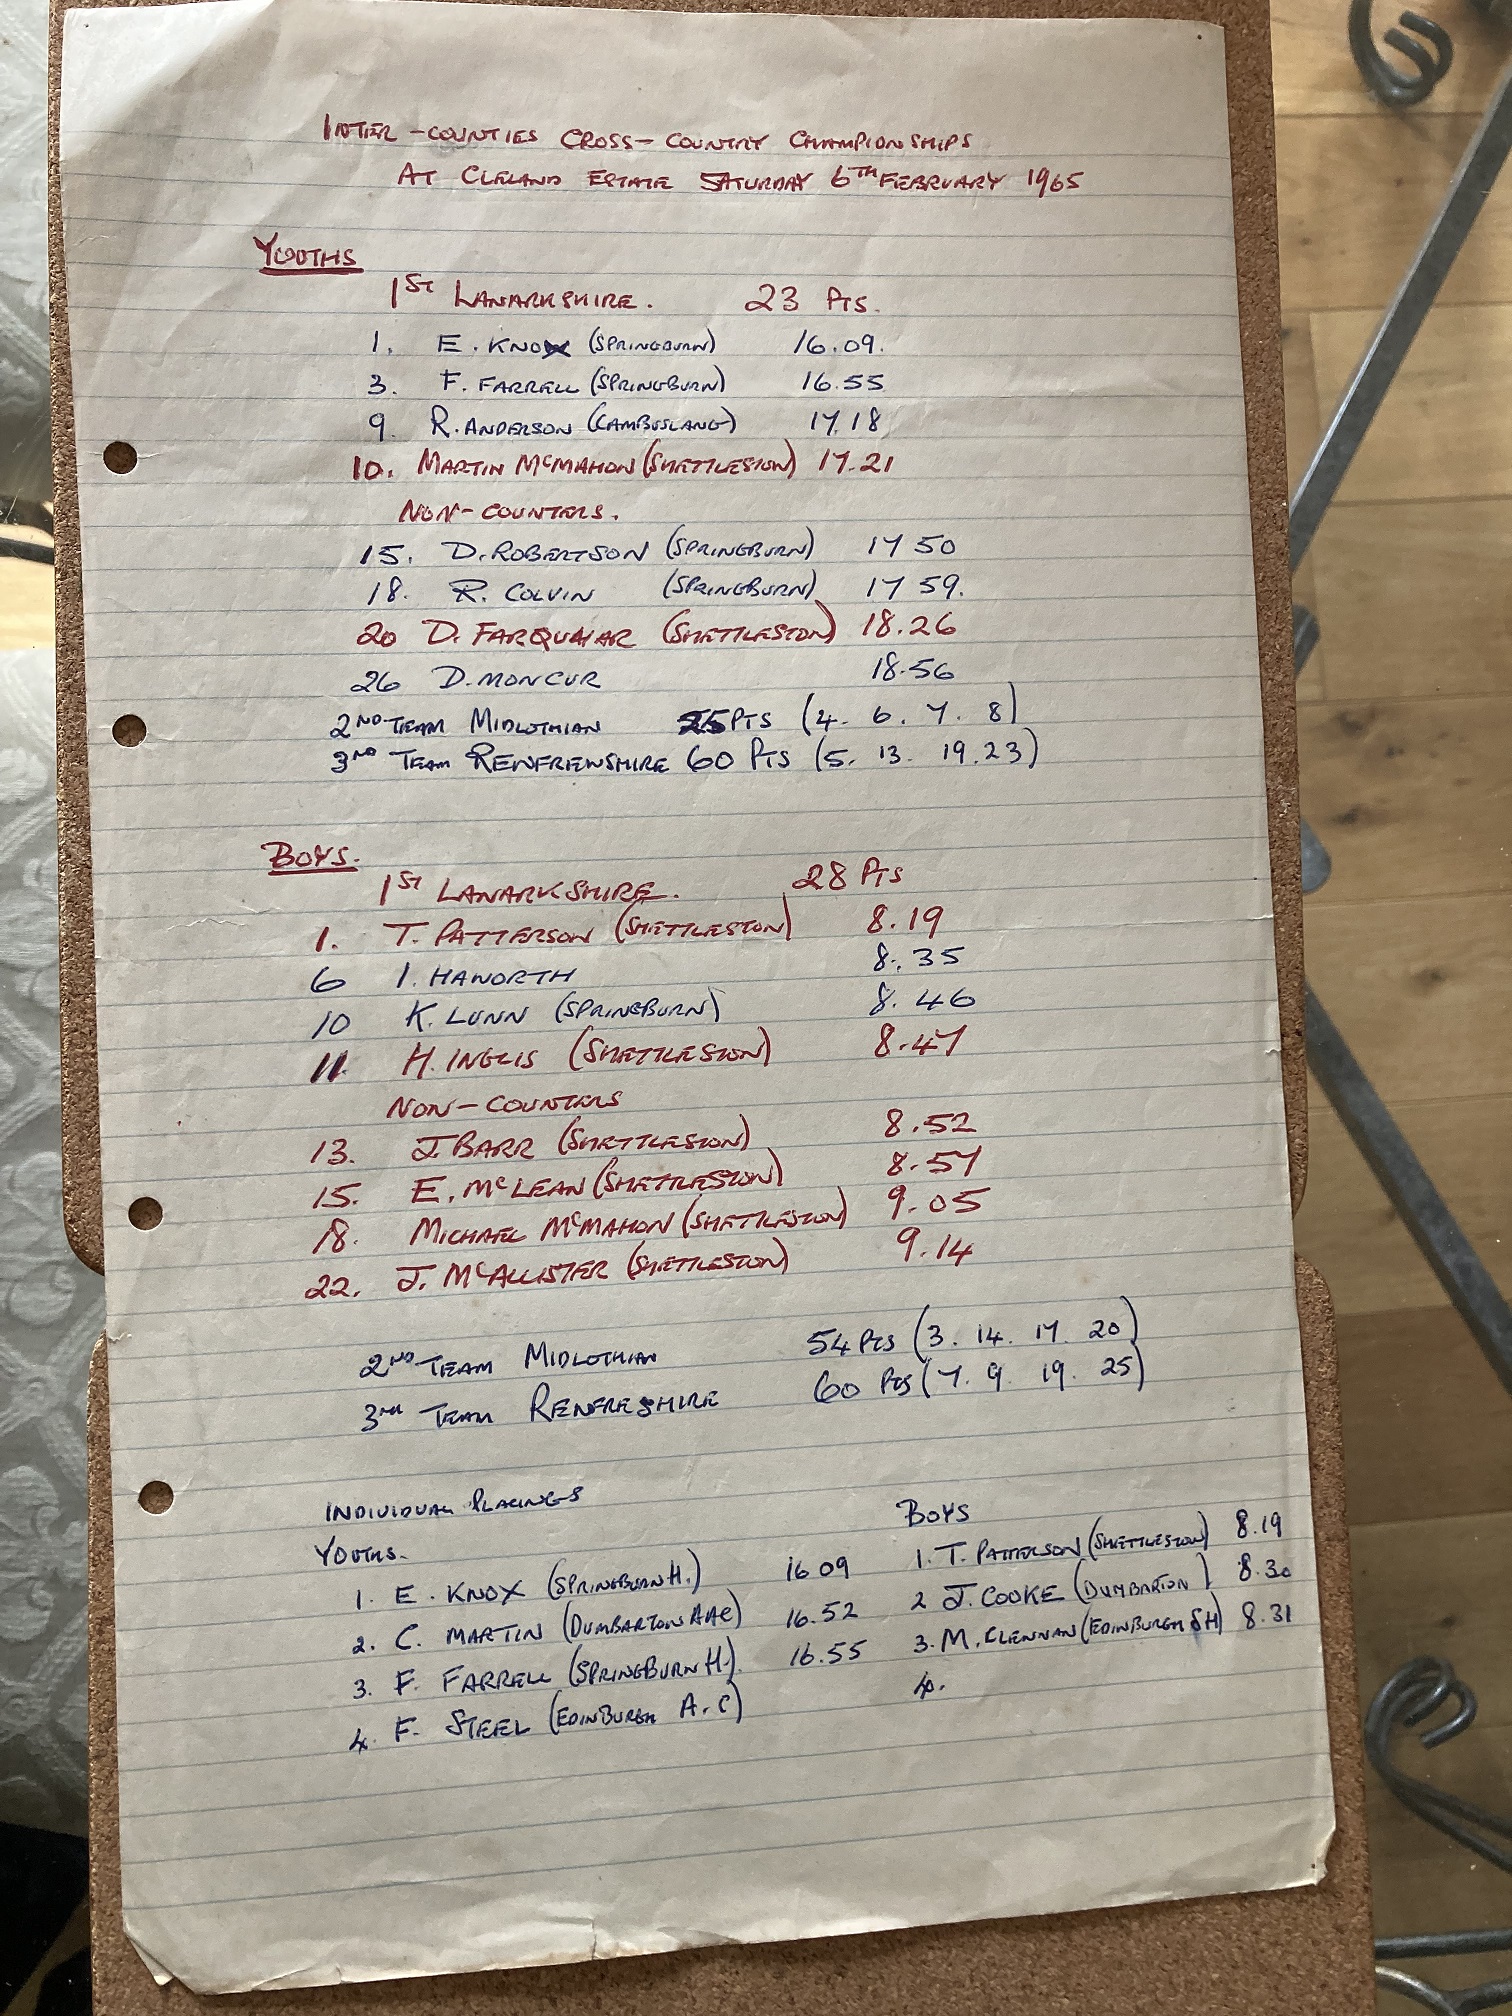 INTER-COUNTIES CROSS-COUNTRY CHAMPIONSHIPS
AT CLELAND ESTATE SATURDAY 6TH FEBRUARY 1965
YOUTHS
1ST LANARKSHIRE. 23 PTS.
1. E. KNOX (SPRINGBURN) 16.09.
3. F. FARRELL (SPRINGBURN) 16.55
9. R. ANDERSON (CAMBUSLANG) 17.18
10. MARTIN McMAHON (SHETTLESTON) 17.21
NON-COUNTERS.
15. D. ROBERTSON (SPRINGBURN) 17 50
18. R. COLVIN (SPRINGBURN) 17 59.
20 D. FARQUHAR (SHETTLESTON) 18.26
26 D. MONCUR 18.56
2ND TEAM MIDLOTHIAN 25 PTS (4. 6. 7. 8)
3RD TEAM RENFREWSHIRE 60 PTS (5. 13. 19. 23)
BOYS.
1ST LANARKSHIRE. 28 PTS
1. T. PATTERSON (SHETTLESTON) 8.19
6 I. HAWORTH 8.35
10 K. LUNN (SPRINGBURN) 8.46
11. H. INGLIS (SHETTLESTON) 8.47
NON-COUNTERS
13. J. BARR (SHETTLESTON) 8.52
15. E. McLEAN (SHETTLESTON) 8.57
18. MICHAEL McMAHON (SHETTLESTON) 9.05
22. J. McALLISTER (SHETTLESTON) 9.14
2ND TEAM MIDLOTHIAN 54 PTS (3. 14. 17. 20)
3RD TEAM RENFRESHIRE 60 PTS (7. 9. 19. 25)
INDIVIDUAL PLACINGS
YOUTHS.
1. E. KNOX (SPRINGBURN H.) 16 09
2. C. MARTIN (DUMBARTON AAC) 16.52
3. F. FARRELL (SPRINGBURN H.) 16.55
4. F. STEEL (EDINBURGH A.C)
BOYS
1. T. PATTERSON (SHETTLESTON) 8.19
2 J. COOKE (DUMBARTON) 8.30
3. M. CLENNAN (EDINBURGH SH) 8.31
4.